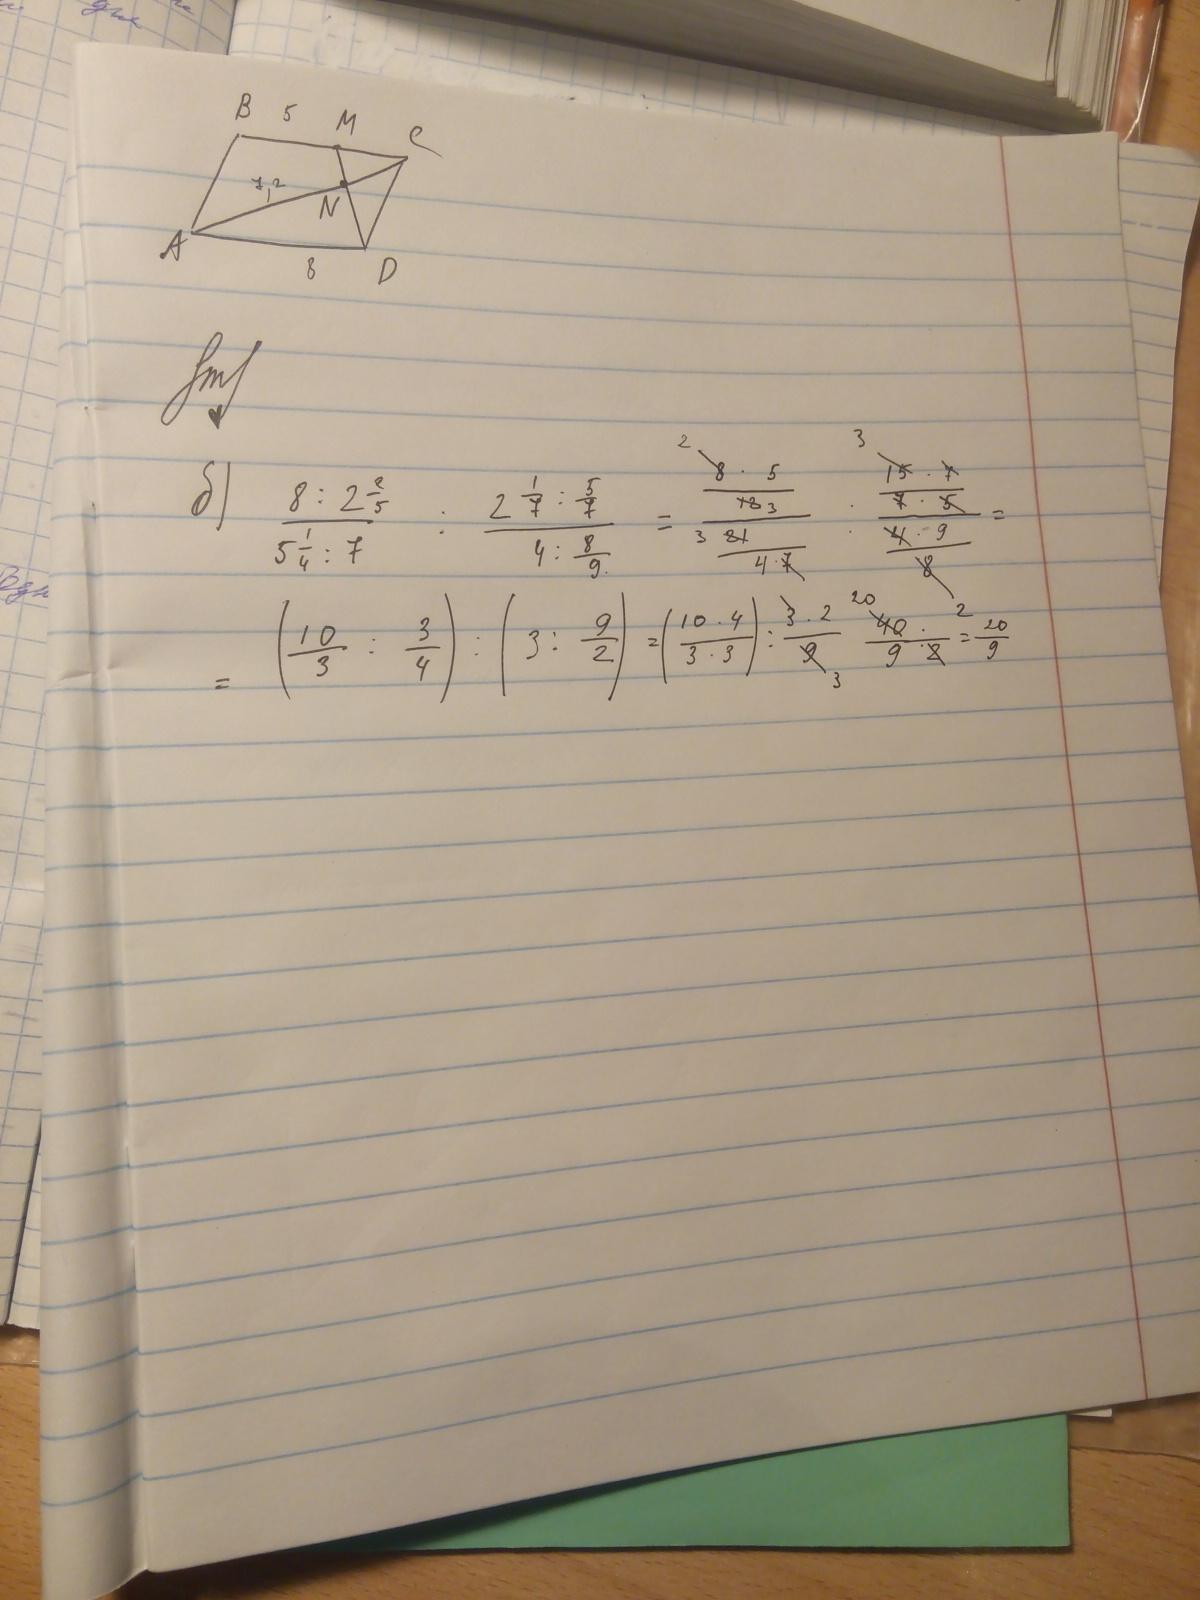 дня
B 5 M C
7,2
N
A
8 D
б) (8 : 2 2/5)/(5 1/4 : 7) : (2 1/7 : 5/7)/(4 : 8/9) = ((2 8 · 5)/(12 3))/((3 21)/(4 · 7)) : ((3 15 · 7)/(7 · 5))/((4 · 9)/(8 2)) =
= (10/3 : 3/4) : (3 : 9/2) = ((10 · 4)/(3 · 3)) : (3 · 2)/(9 3) (20 40 ·)/(9 · 2) = 20/9